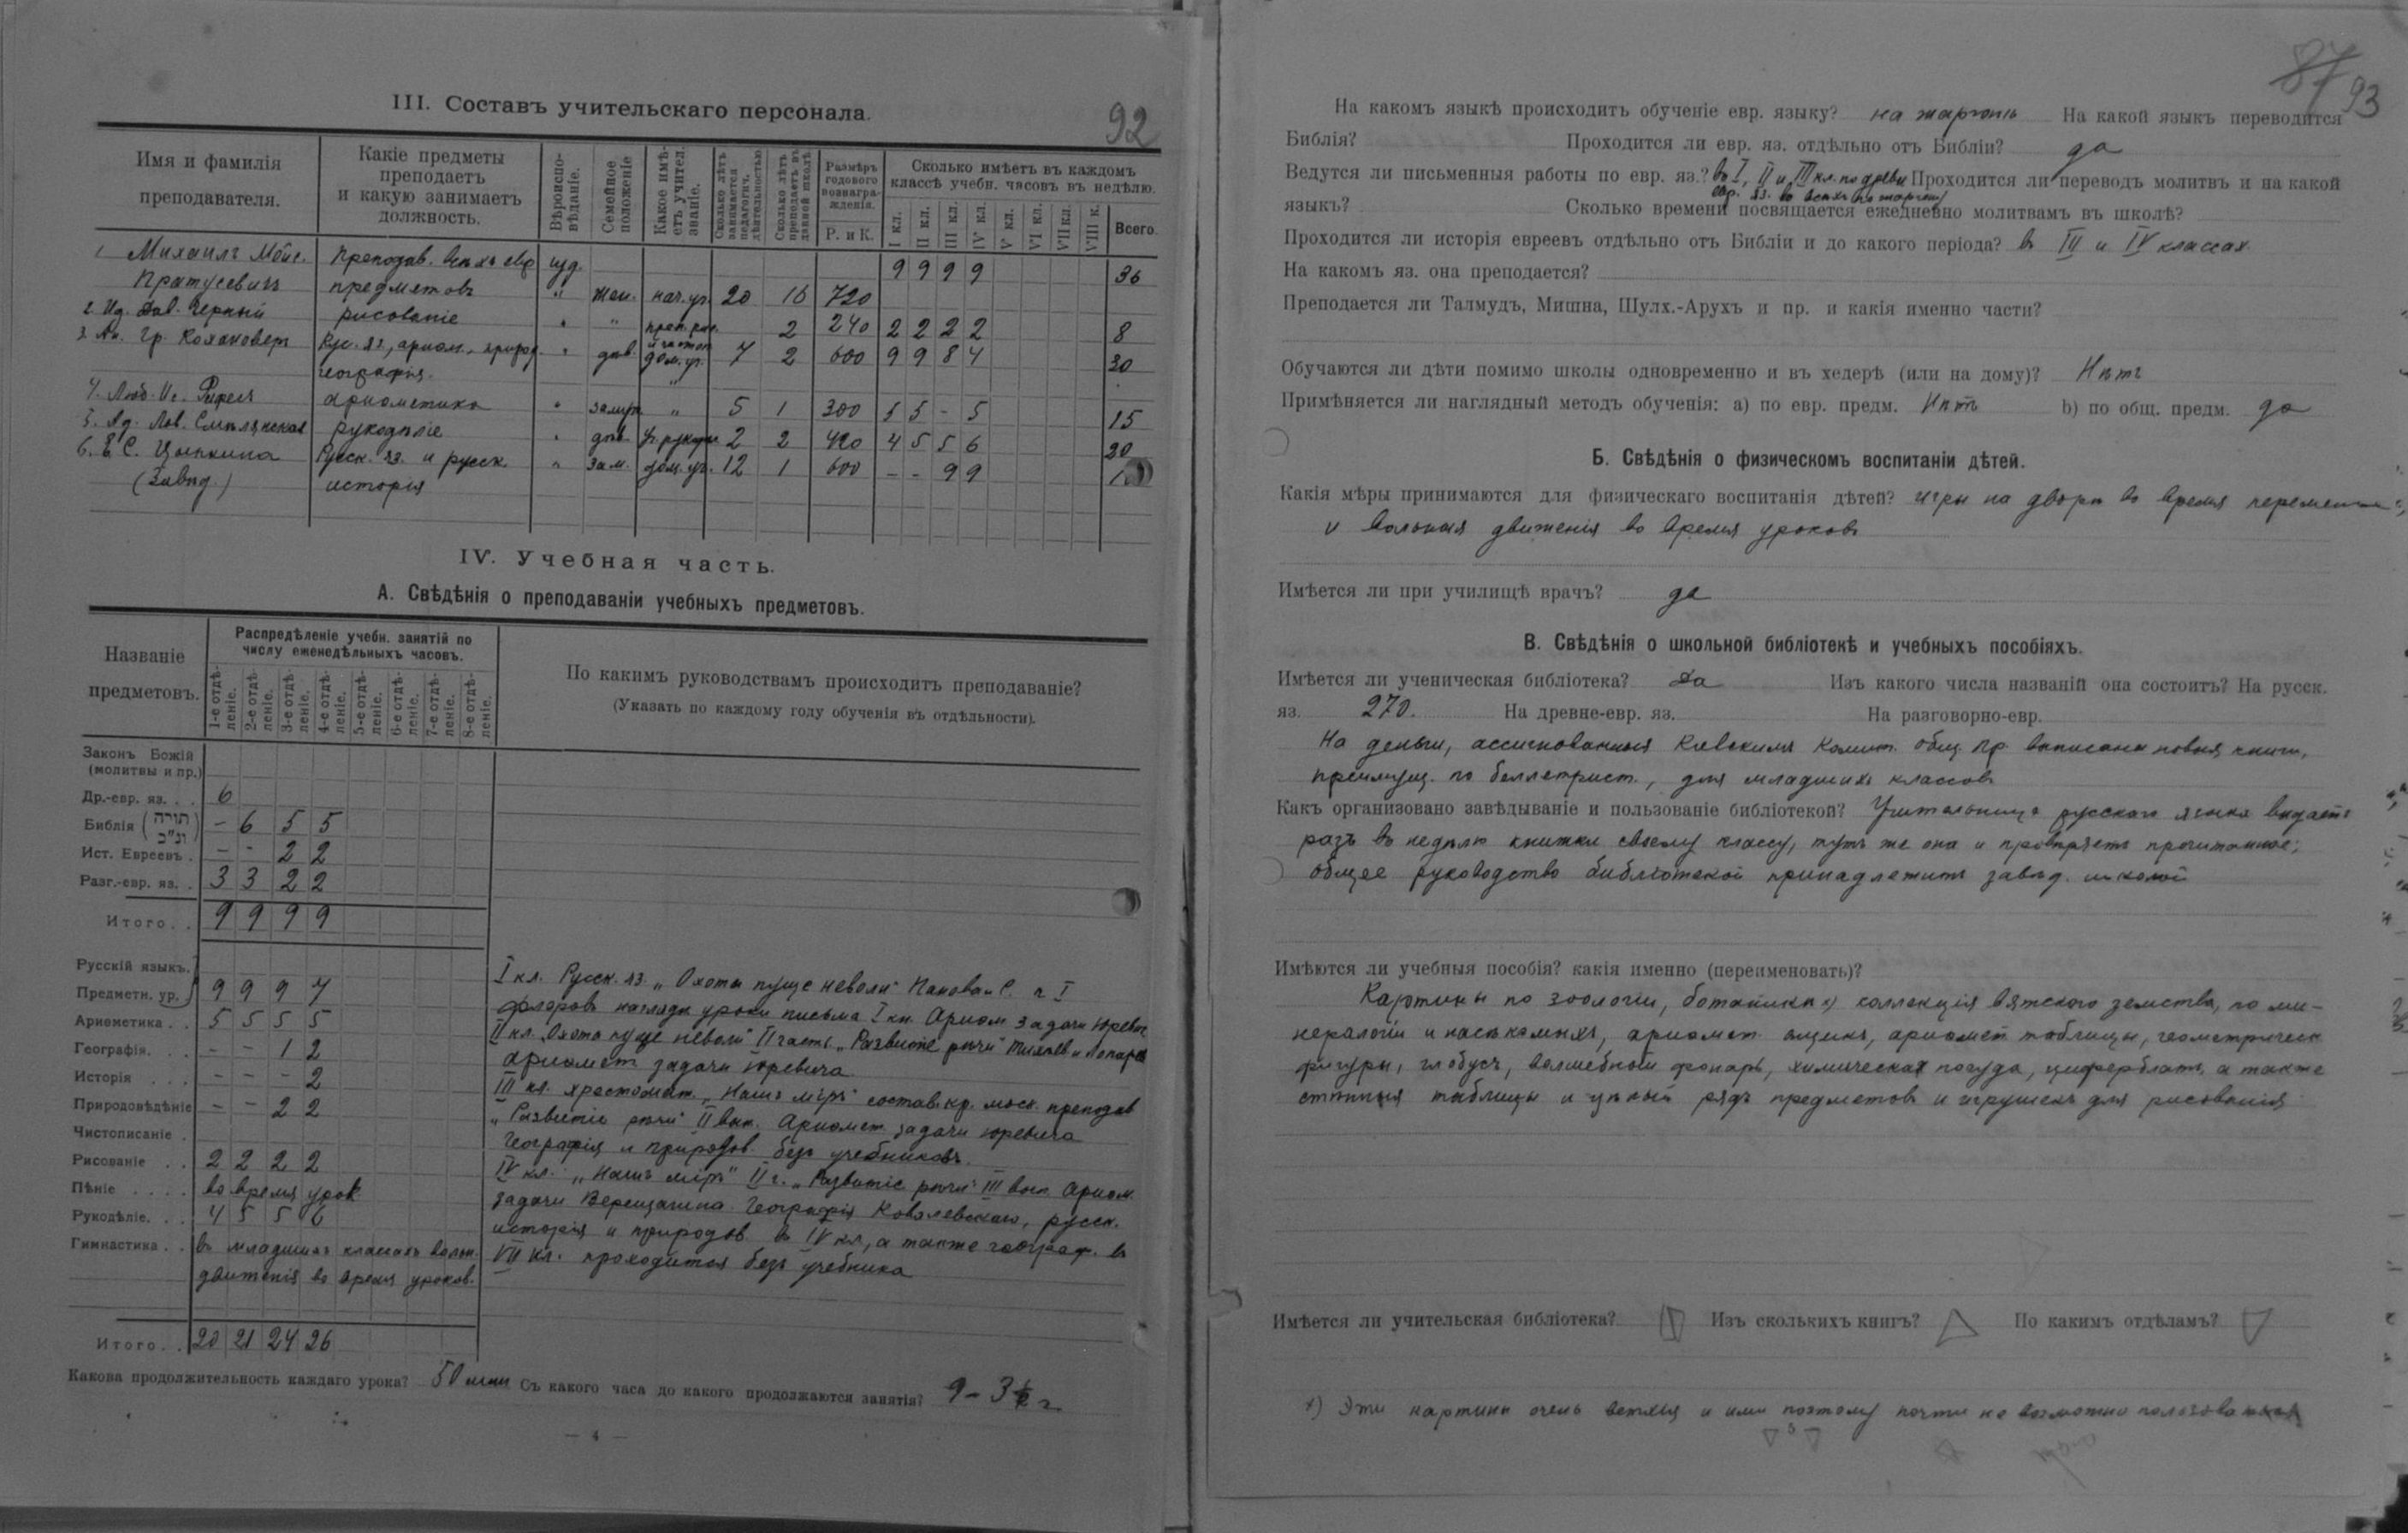 92
III. Составъ учительскаго персонала.
Имя и фамилія преподавателя.
Какіе предметы преподаетъ и какую занимаетъ должность.
Вѣроисповѣданіе.
Семейное положеніе
Какое имѣетъ учител. званіе.
Сколько лѣтъ занимается педагогич. дѣятельностью
Сколько лѣтъ преподаетъ въ данной школѣ
Размѣръ годового вознагражденія.
Р. и К.
Сколько имѣетъ въ каждомъ классѣ учебн. часовъ въ недѣлю.
I кл. II кл. III кл. IV кл. V кл. VI кл. VII кл. VIII к. Всего.
1 Михаилъ Моис. Преподав. всѣхъ евр іуд. 9 9 9 9 36
Пратусевичъ предметовъ " жен. нач. уч. 20 16 720
2. Ид. Дав. Черный рисованіе " " 2 240 2 2 2 2 8
3. Ан. Гр. Кохановеръ Рус. яз., ариѳм., природ. " дѣв. дом. уч. 7 2 600 9 9 8 4 30
географія.
4. Люб. Ис. ариѳметика " замуж. " 5 1 300 5 5 - 5 15
5. Ад. Лев. Смѣлянская рукодѣліе " дѣв. 2 2 420 4 5 5 6 20
6. Е. С. Цыпкина Русск. яз. и русск. " зам. дом. уч. 12 1 600 - - 9 9
(Завѣд.) исторія
IV. Учебная часть.
А. Свѣдѣнія о преподаваніи учебныхъ предметовъ.
Названіе предметовъ.
Распредѣленіе учебн. занятій по числу еженедѣльныхъ часовъ.
1-е отдѣленіе. 2-е отдѣленіе. 3-е отдѣленіе. 4-е отдѣленіе. 5-е отдѣленіе. 6-е отдѣленіе. 7-е отдѣленіе. 8-е отдѣленіе.
По какимъ руководствамъ происходитъ преподаваніе?
(Указать по каждому году обученія въ отдѣльности).
Законъ Божій
(молитвы и пр.)
Др.-евр. яз. . . 6
Библія (תורה ונ"כ) - 6 5 5
Ист. Евреевъ . - - 2 2
Разг.-евр. яз. . 3 3 2 2
Итого . . 9 9 9 9
Русскій языкъ.
Предметн. ур. 9 9 9 7
Ариѳметика . . 5 5 5 5
Географія. . . - - 1 2
Исторія . . . - - - 2
Природовѣдѣніе - - 2 2
Чистописаніе .
Рисованіе . . 2 2 2 2
Пѣніе . . . . во время урок
Рукодѣліе. . . 4 5 5 6
Гимнастика . . въ младшихъ классахъ вольн.
движенія во время уроков.
Итого. . 20 21 24 26
I кл. Русск. яз. „Охота пуще неволи" С. ч I
Флеровъ нагляди уроки письма I кн. Ариѳм задачи Юревич
II кл. „Охота пуще неволи" II часть. „Развитіе рѣчи"
Ариѳмет. задачи Юревича.
III кл. хрестомат. „Нашъ міръ" состав. кр. моск. преподав
„Развитіе рѣчи" II вып. Ариѳмет. задачи Юревича
Географія и Природов. безъ учебниковъ.
IV кл. „Нашъ міръ" II ч. „Развитіе рѣчи" III вып. Ариѳм.
задачи Верещагина. Географія Ковалевскаго, русск.
исторія и природов. въ IV кл., а также географ. въ
VII кл. проходится безъ учебника
Какова продолжительность каждаго урока? 50 мин Съ какого часа до какого продолжаются занятія? 9 – 3½ ч
— 4 —
87 93
На какомъ языкѣ происходитъ обученіе евр. языку? на жаргонѣ На какой языкъ переводится
Библія? Проходится ли евр. яз. отдѣльно отъ Библіи? да
Ведутся ли письменныя работы по евр. яз.? въ I, II и III кл. по древн Проходится ли переводъ молитвъ и на какой
евр. яз. во всѣхъ по жаргону
языкъ? Сколько времени посвящается ежедневно молитвамъ въ школѣ?
Проходится ли исторія евреевъ отдѣльно отъ Библіи и до какого періода? въ III и IV классах
На какомъ яз. она преподается?
Преподается ли Талмудъ, Мишна, Шулх.-Арухъ и пр. и какія именно части?
Обучаются ли дѣти помимо школы одновременно и въ хедерѣ (или на дому)? Нѣтъ
Примѣняется ли наглядный методъ обученія: а) по евр. предм. Нѣтъ b) по общ. предм. да
Б. Свѣдѣнія о физическомъ воспитаніи дѣтей.
Какія мѣры принимаются для физическаго воспитанія дѣтей? игры на дворѣ во время перемены
и вольныя движенія во время уроковъ
Имѣется ли при училищѣ врачъ? да
В. Свѣдѣнія о школьной библіотекѣ и учебныхъ пособіяхъ.
Имѣется ли ученическая библіотека? Да Изъ какого числа названій она состоитъ? На русск.
яз. 270. На древне-евр. яз. На разговорно-евр.
На деньги, ассигнованныя Кіевскимъ Комит. общ. пр. выписаны новыя книги,
преимущ. по беллетрист., для младшихъ классовъ
Какъ организовано завѣдываніе и пользованіе библіотекой? Учительница русскаго языка выдаетъ
разъ въ недѣлю книжки своему классу, тутъ же она и провѣряетъ прочитанное;
общее руководство библіотекой принадлежитъ завѣд. школой
Имѣются ли учебныя пособія? какія именно (переименовать)?
Картины по зоологіи, ботаникѣ x) коллекція вятскаго земства, по ми-
нералогіи и насѣкомыхъ, ариѳмет. ящикъ, ариѳмет таблицы, геометрическ
фигуры, глобусъ, волшебный фонарь, химическая посуда, циферблатъ, а также
стѣнныя таблицы и цѣлый рядъ предметовъ и игрушекъ для рисованія
Имѣется ли учительская библіотека? Изъ сколькихъ книгъ? По какимъ отдѣламъ?
x) Эти картины очень ветхія и ими поэтому почти не возможно пользоваться